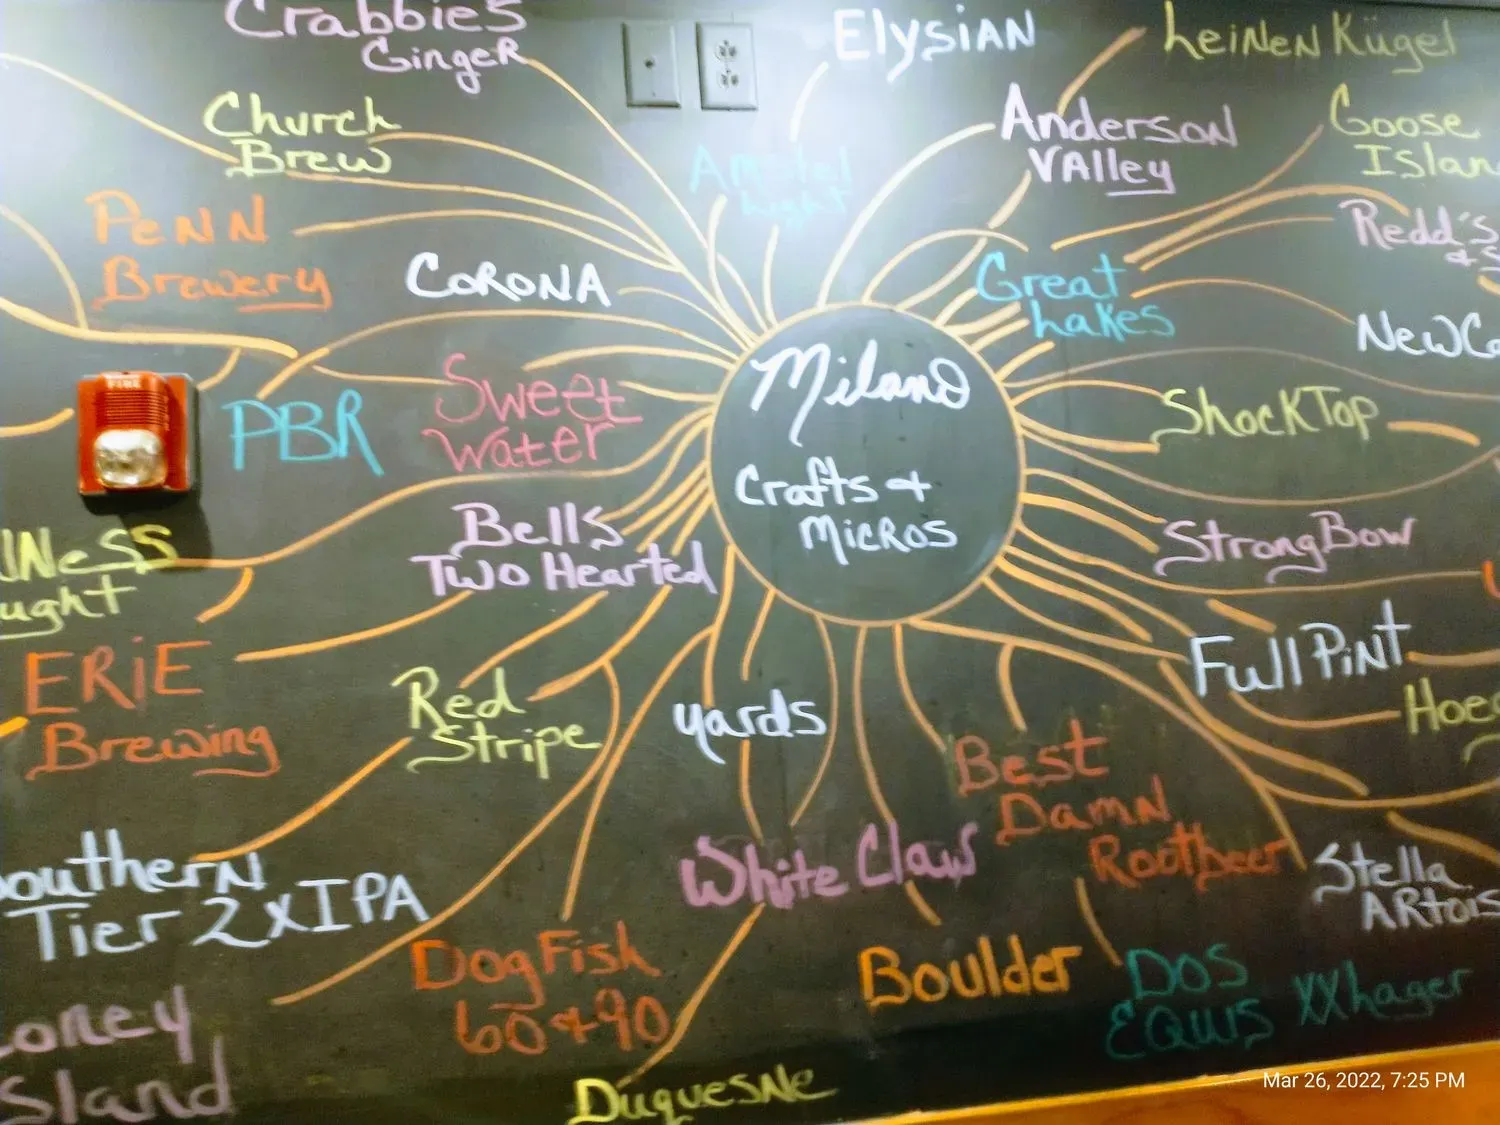 Crabbies
Ginger
Church
Brew
Penn
Brewery
Corona
FIRE
PBR
Sweet
Water
Bells
Two Hearted
ught
ERiE
Brewing
Red
Stripe
outhern
Tier 2xIPA
oney
sland
DogFish
60 & 90
Duquesne
Elysian
Amstel
Light
Milano
Crafts &
Micros
yards
White Claw
Leinen Kügel
Anderson
Valley
Goose
Islan
Great
Lakes
Redd's
& S
NewCa
ShockTop
StrongBow
Full Pint
Hoeg
Best
Damn
Rootbeer
Stella
ARtois
Boulder
DOS
EQUIS XX Lager
Mar 26, 2022, 7:25 PM